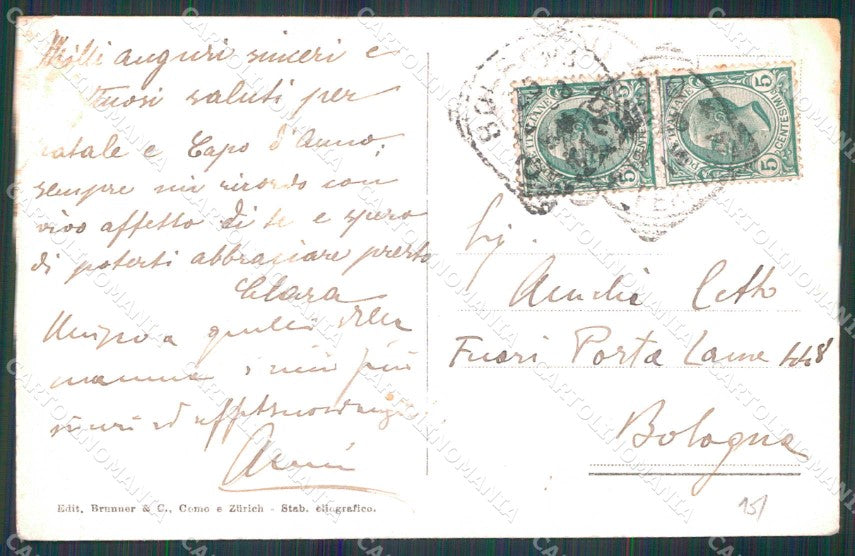 Mille auguri sinceri e
affettuosi saluti per
natale e Capo d'Anno,
sempre mi ricordo con
vivo affetto di te e spero
di poterti abbracciare presto
Clara
Unisco a quelli della
mamma i miei più
sinceri ed affettuosi auguri
Sig.
Amelia
Fuori Porta Lame 448
Bologna
Edit. Brunner & C., Como e Zürich - Stab. eliografico.
15/
POSTE ITALIANE
CENTESIMI 5
POSTE ITALIANE
CENTESIMI 5
BOLOGNA
CARTOLINOMANIA